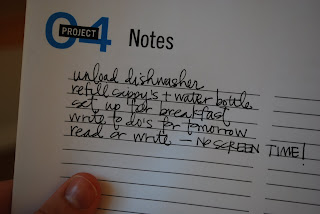 04
PROJECT
Notes
unload dishwasher
refill sippy's + water bottle
set up for breakfast
write to do's for tomorrow
read or write - NO SCREEN TIME!